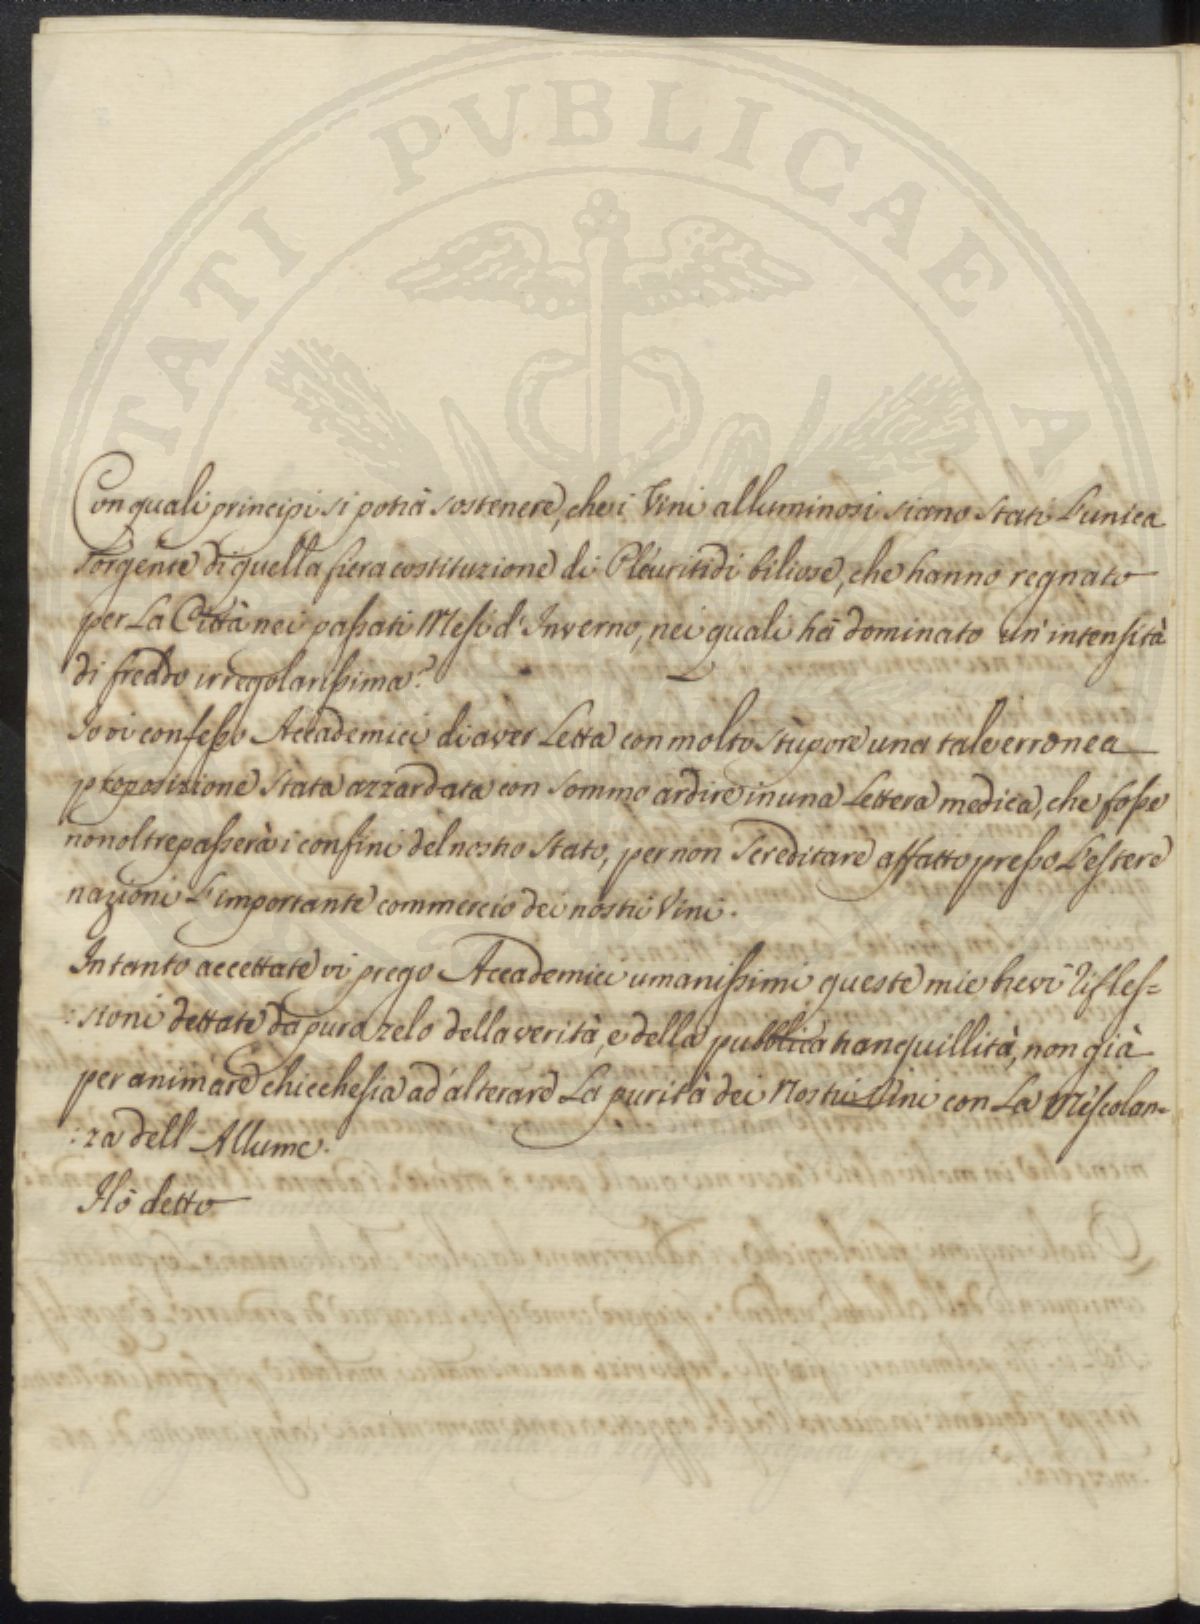 TATI PUBLICAE A
Con quali principj si potrà sostenere, che i Vini alluminosi siano stati L'unica
sorgente di quella fiera costituzione di Pleuritidi biliose, che hanno regnato
per La Città nei passati Mesi d'Inverno, nei quali hà dominato un'intensità
di freddo irregolarissima?
Io vi confesso Accademici di aver Letta con molto stupore una tale erronea
proposizione stata azzardata con sommo ardire in una Lettera medica, che forse
non oltrepasserà i confini del nostro stato, per non screditare affatto presso L'estere
nazioni L'importante commercio dei nostri Vini.
Intanto accettate vi prego Accademici umanissimi queste mie brevi rifles=
:sioni dettate da puro zelo della verità, e della pubblica tranquillità, non già
per animare chicchesia ad alterare La purità dei Nostri Vini con La Miscolan=
:za dell'Allume.
Hò detto